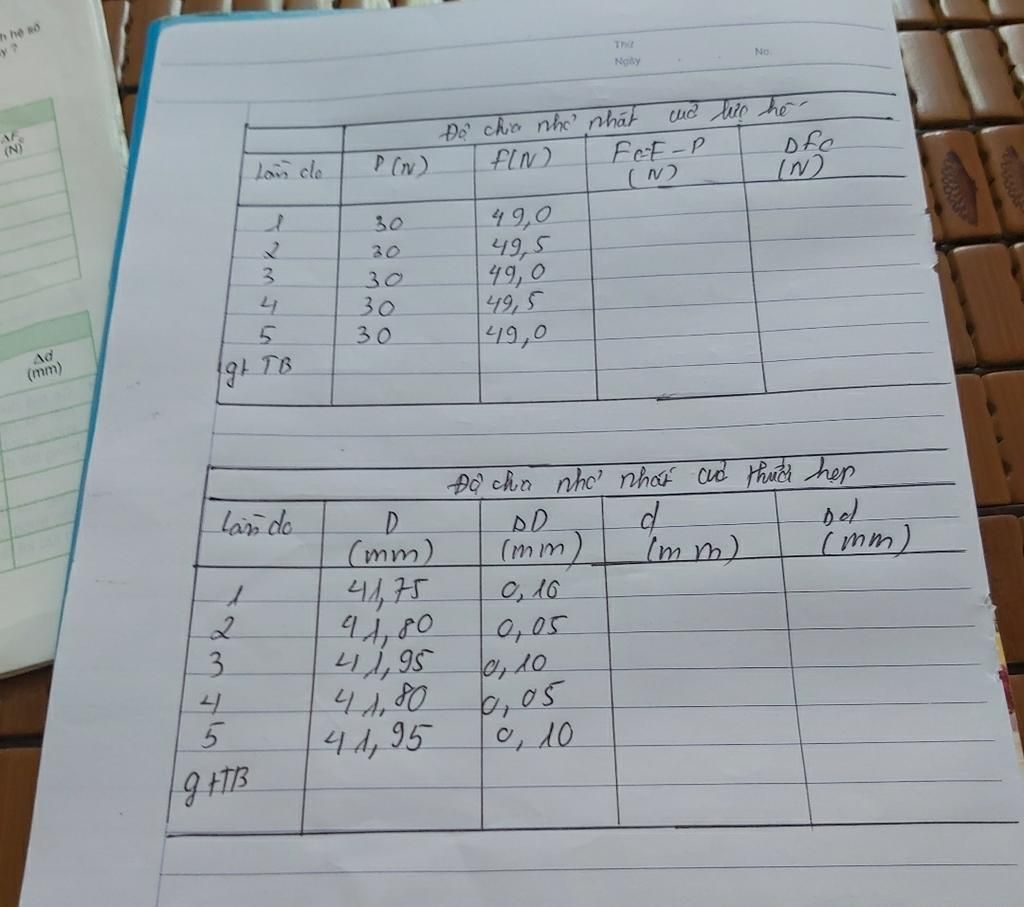 h hệ số
y ?
ΔFc
(N)
Δd
(mm)
Thứ
Ngày No.
Độ chia nhỏ nhất của lực kế
Lần đo P(N) F(N) Fc=F-P (N) DFC (N)
1 30 49,0
2 30 49,5
3 30 49,0
4 30 49,5
5 30 49,0
gt TB
Độ chia nhỏ nhất củ thước hẹp
Lần do D (mm) DD (mm) d (mm) Dd (mm)
1 41,75 0,16
2 41,80 0,05
3 41,95 0,10
4 41,80 0,05
5 41,95 0,10
g tTB